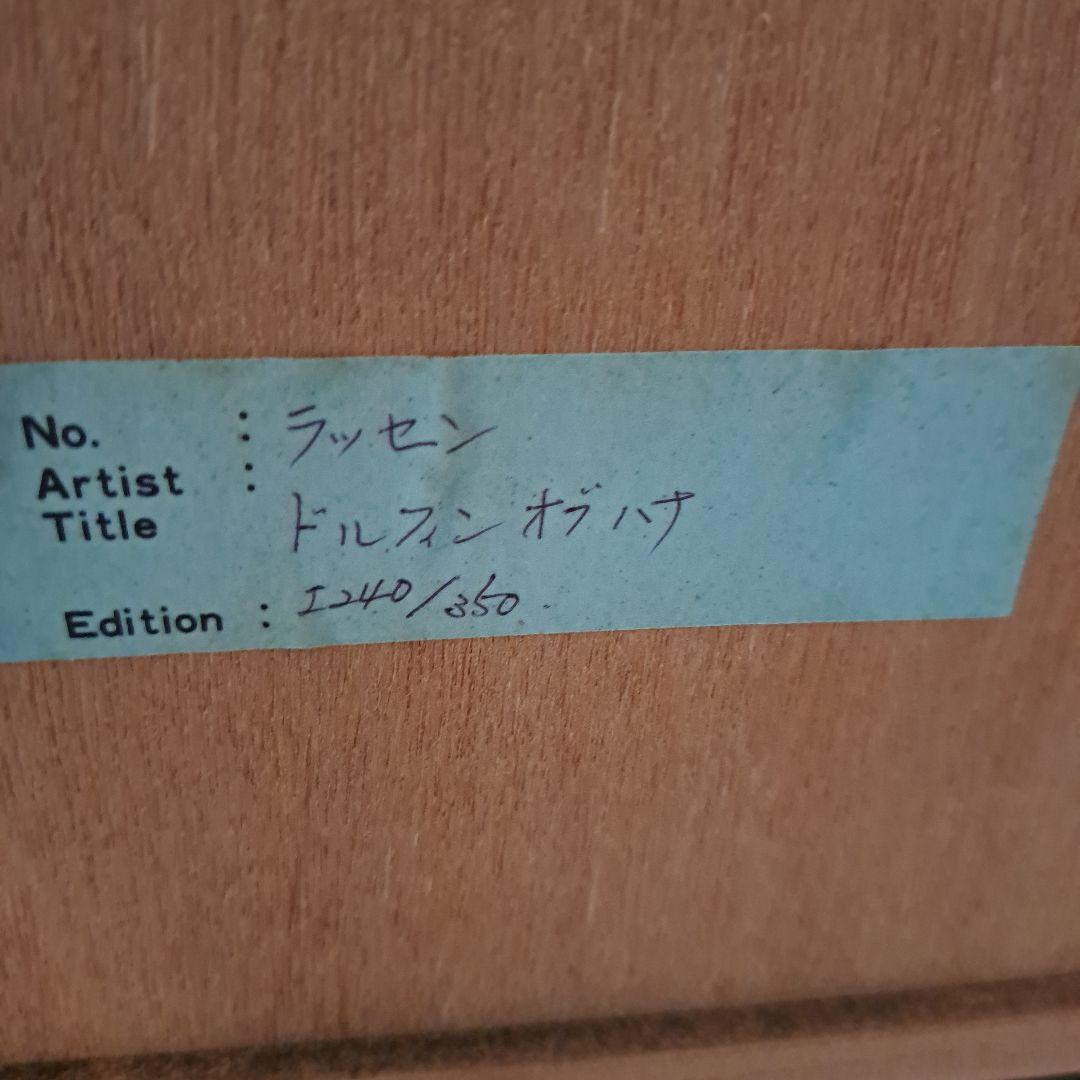 No. : ラッセン
Artist :
Title ドルフィン オブ ハナ
Edition : I240/350